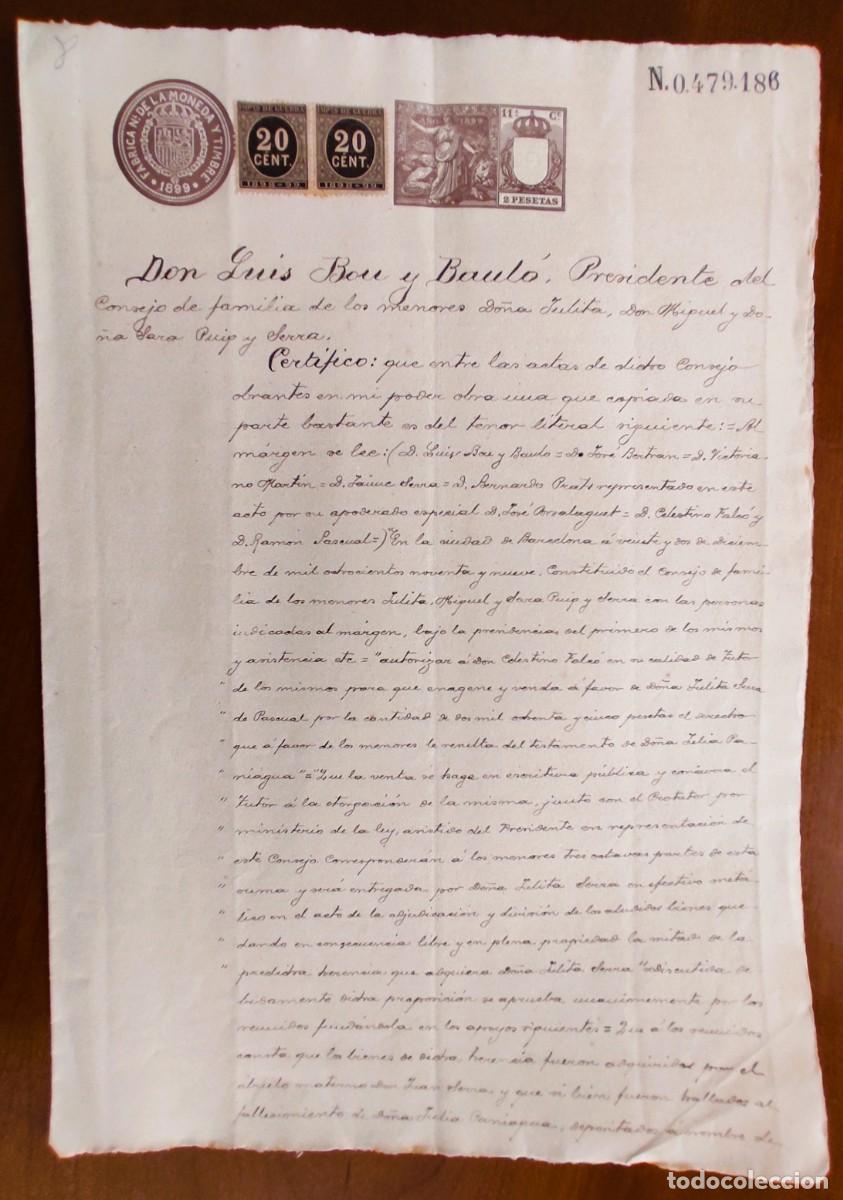 8
N. 0.479.186
FABRICA NAL. DE LA MONEDA Y TIMBRE
1899
IMPTO DE GUERRA
20
CENT.
1898-99
IMPTO DE GUERRA
20
CENT.
1898-99
11ª Cº
2 PESETAS
Don Luis Bou y Bauló, Presidente del
Consejo de familia de los menores Doña Julita, Don Miguel y Do-
ña Sara Puig y Serra.
Certífico: que entre las actas de dicho Consejo
obrantes en mi poder obra una que copiada en su
parte bastante es del tenor literal siguiente: = Al
márgen se lee: (D. Luis Bou y Baulo = D. José Bertran = D. Victoria-
no Martin = D. Jaime Serra = D. Bernardo Prats representado en este
acto por su apoderado especial D. José = D. Celestino Falcó y
D. Ramon Pascual =) "En la ciudad de Barcelona á veinte y dos de diciem-
bre de mil ochocientos noventa y nueve. Constituido el Consejo de fami-
lia de los menores Julita, Miguel y Sara Puig y Serra con las personas
indicadas al márgen, bajo la presidencia del primero de los mismos
y asistencia etc = "autorizar á Don Celestino Falcó en su calidad de Tutor
" de los mismos para que enagene y venda á favor de Doña Julita Serra
" de Pascual por la cantidad de dos mil ochenta y cinco pesetas el derecho
" que á favor de los menores le resulta del testamento de Doña Julia Pa-
" niagua" = "Que la venta se haga en escritura pública y concurra el
" Tutor á la otorgación de la misma, junto con el Protutor por
" ministerio de la ley, asistido del Presidente en representación de
" este Consejo. Corresponderán á los menores tres octavas partes de esta
" suma y será entregada por Doña Julita Serra en efectivo metá-
" lico en el acto de la adjudicación y división de los aludidos bienes que-
" dando en consecuencia libre y en plena propiedad la mitad de la
" predicha herencia que adquiera Doña Julita Serra" = discutida de-
bidamente dicha proposición se aprueba unanimemente por los
reunidos fundándola en los apoyos siguientes = Que á los reunidos
consta que los bienes de dicha herencia fueron adquiridos por el
abuelo materno Don Juan Serra y que si bien fueron hallados al
fallecimiento de Doña Julia Paniagua, depositados á nombre de
todocoleccion